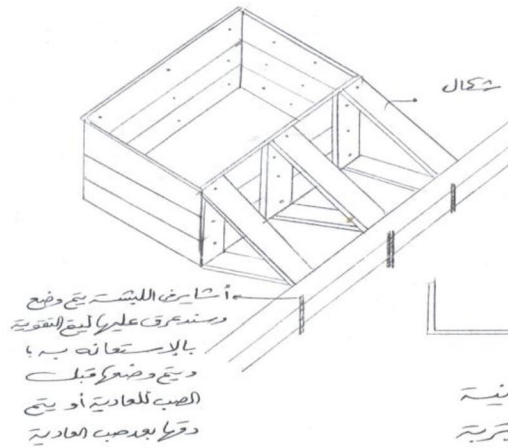 شكال
أشاير في اللبشة يتم وضع
وسند عرق عليها ليتم التقوية
بالاستعانه به
ويتم وضعها قبل
الصب للعادية أو يتم
دقها بعد صب العادية